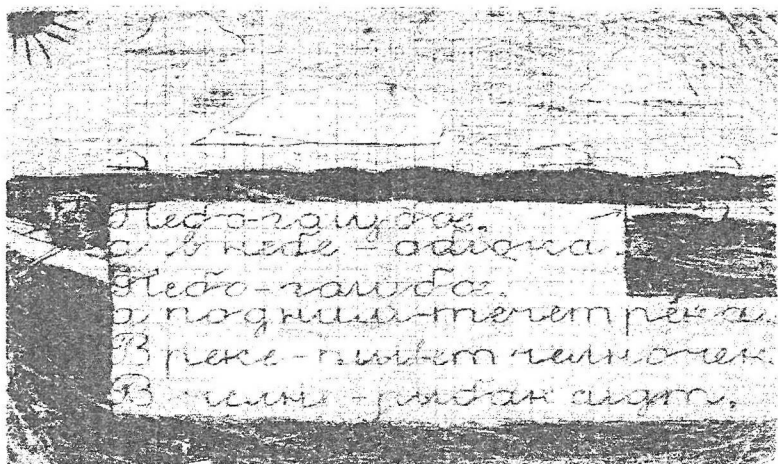 Небо-голубое,
а в небе - облака
Небо-голубое,
а под ним-течет река.
В реке-плывет челночек
В челне-рыбак сидит.